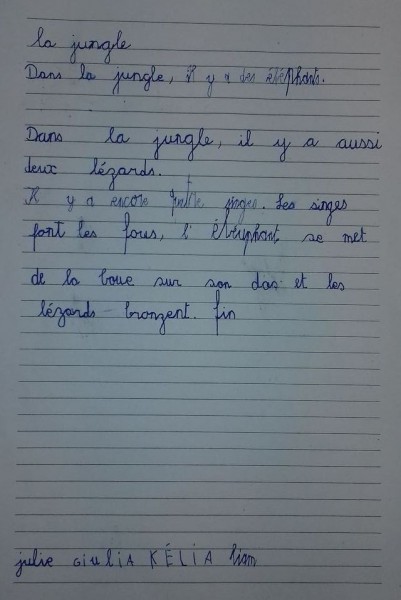 la jungle
Dans la jungle, il y a des éléphants.
Dans la jungle, il y a aussi
deux lézards.
Il y a encore quatre singes. Les singes
font les fous, l'éléphant se met
de la boue sur son dos et les
lézards bronzent. fin
julie GiuliA KÉLIA liam